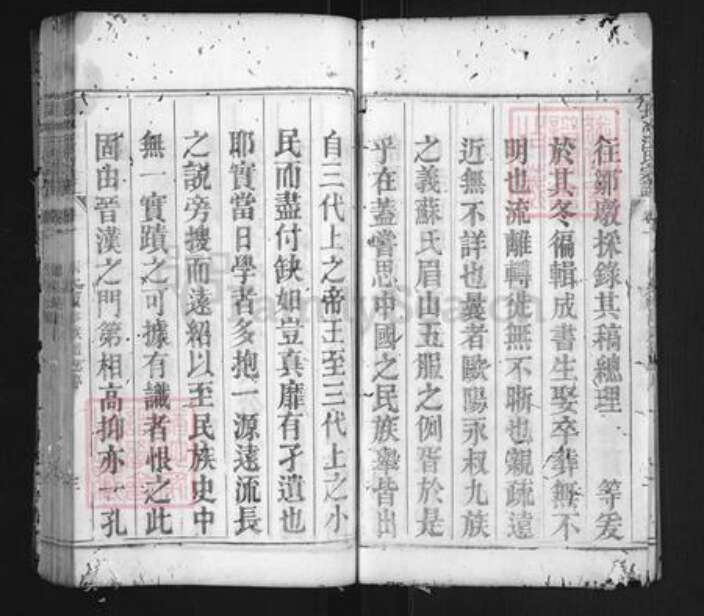 往鄒墩採錄其稿總理　　等爰
於其冬徧輯成書生娶卒葬無不
明也流離轉徙無不晰也親疏遠
近無不詳也曩者歐陽永叔九族
之義蘇氏眉山五服之例胥於是
乎在蓋嘗思中國之民族舉皆出
自三代上之帝王至三代上之小
民而盡付缺如豈真靡有孑遺也
耶實當日學者多抱一源遠流長
之說旁搜而遠紹以至民族史中
無一實蹟之可據有識者恨之此
固由晉漢之門第相高抑亦一孔